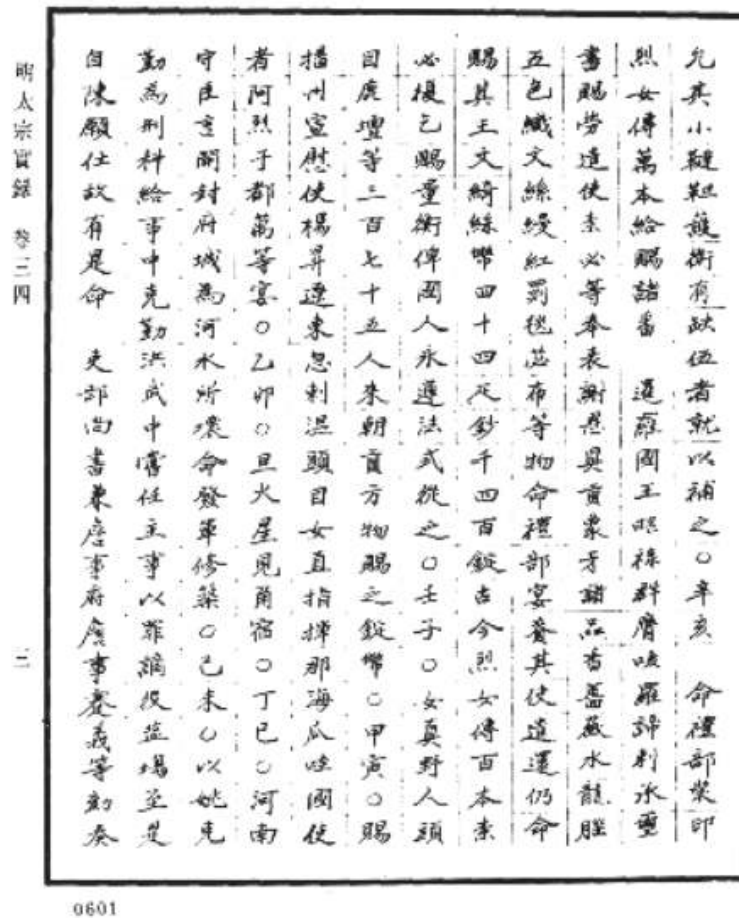 允其小韃靼護衛有缺伍者就以補之○辛亥　命禮部裝印
烈女傳萬本給賜諸番　暹羅國王昭祿群膺哆羅諦剌氷璽
書賜勞遣使柰必等奉表謝恩貢象牙諸品香薔薇水龍腦
五色織文絲縵紅罽毯苾布等物命禮部宴賚其使遣還仍命
賜其王文綺絲幣四十四疋鈔千四百錠古今烈女傳百本柰
必復乞賜量衡俾國人永遵法式從之○壬子○女真野人頭
目鹿壇等三百七十五人來朝貢方物賜之錠幣○甲寅○賜
播州宣慰使楊昇遼東忽剌温頭目女直指揮那海瓜哇國使
者阿烈于都萬等宴○乙卯○旦火星見角宿○丁巳○河南
守臣言開封府城為河水所壞命發軍修築○己未○以姚克
勤為刑科給事中克勤洪武中嘗任主事以罪謫役盐塲至是
自陳願仕故有是命　吏部尚書兼詹事府詹事蹇義等劾奏
明太宗實錄　卷三四
二
0601